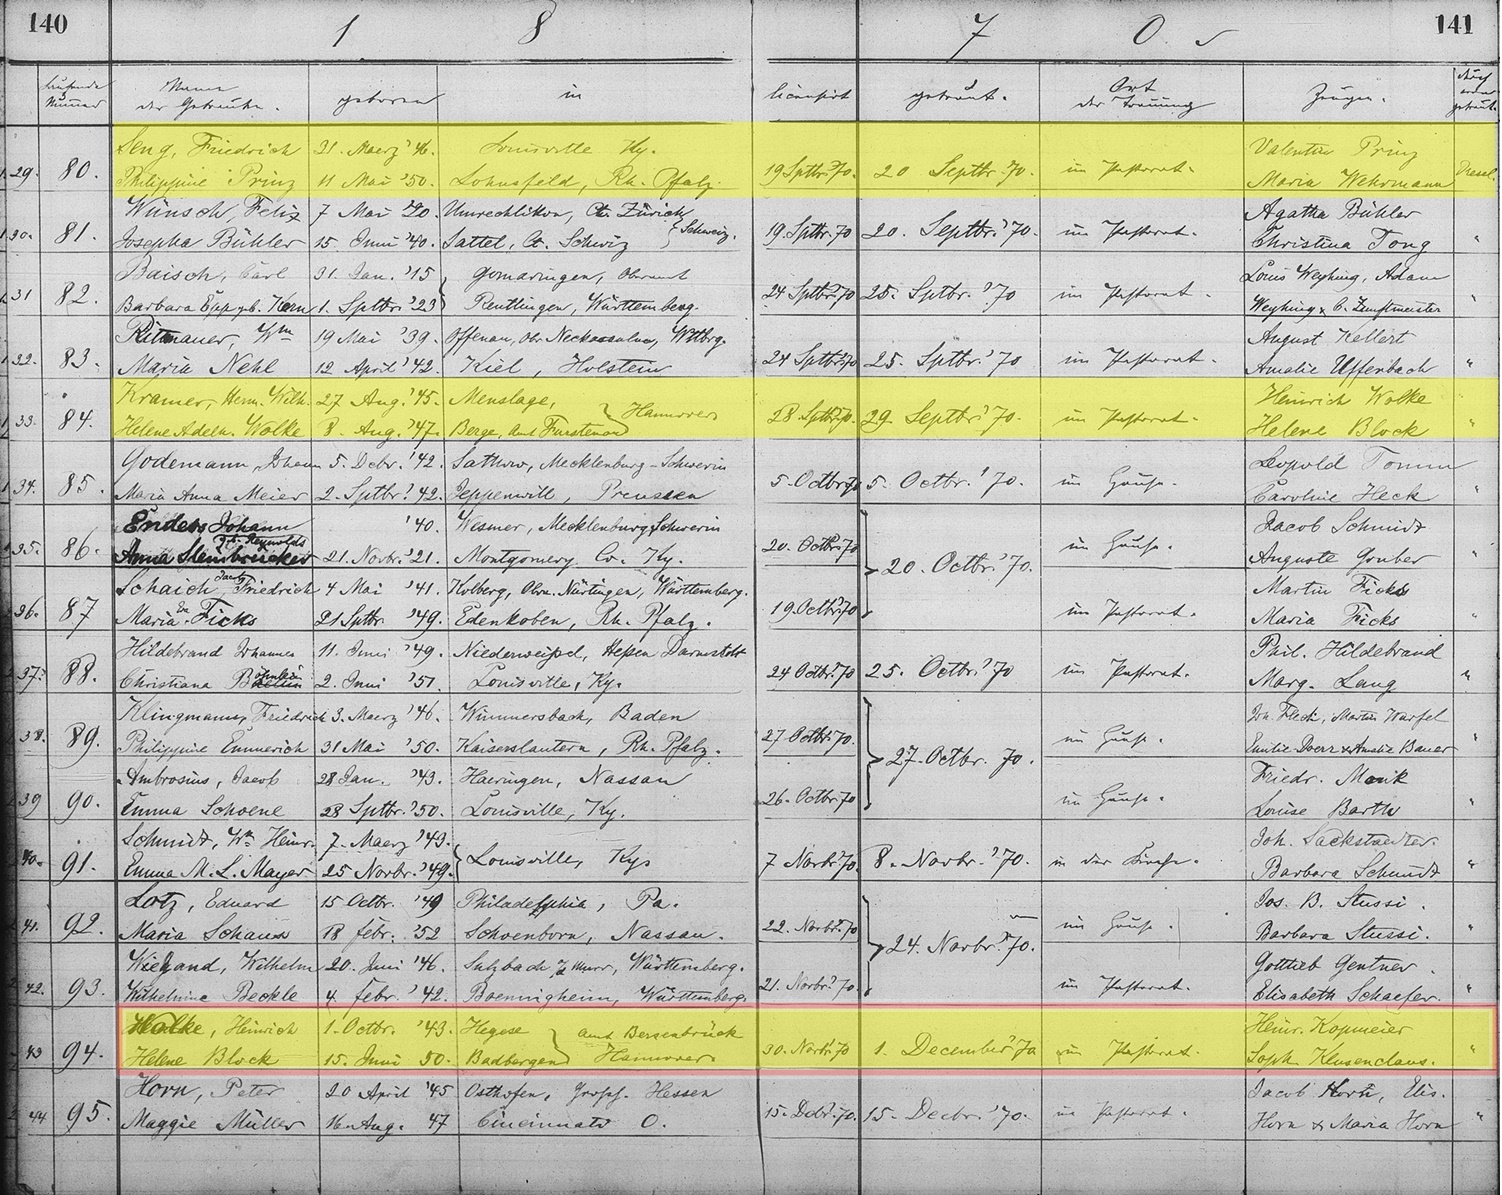 140 1 8 7 0 141
laufende Nummer Name der Getrauten. geboren in licensirt getraut. Ort der Trauung Zeugen. durch wen getraut
Seng, Friedrich 31. Maerz '46. Louisville Ky. Valentin Prinz
29. 80. Philippine Prinz 11 Mai '50. Lohnsfeld, Rh. Pfalz. 19 Septbr. 70. 20 Septbr. 70. im Pastorat. Maria Wehrmann
Wünsch, Felix 7 Mai '20. Ct. Zürich Agatha Bühler
30. 81. Josepha Bühler 15. Juni '40. Sattel, Ct. Schwiz } Schweiz. 19. Sptbr. 70 20. Septbr. '70. im Pastorat. Christina Tong "
Baisch, Carl 31. Jan. '15 } Gomaringen, Oberamt Louis Weyhing, Adam
31 82. Barbara Epp geb. Kern 1. Sptbr. '23 Reutlingen, Württemberg. 24 Sptbr. 70 25. Sptbr. '70 im Pastorat. Weyhing & C. Zunftmeister "
Ritmauer, Wm 19 Mai '39. Offenau, Obr. Neckarsulm, Wttbrg. August Kellert
32. 83. Maria Nehl 12 April '42. Kiel, Holstein 24 Sptbr. 70 25. Sptbr. '70 im Pastorat. Amalie Uffenbach "
Kramer, Herm. Wilh. 27 Aug. '45. Menslage, Heinrich Wolke
33. 84. Helene Adelh. Wolke 8. Aug. '47. Berge, Amt Fürstenau } Hannover 28. Sptbr. 70. 29. Septbr. '70. im Pastorat. Helene Block "
Godemann, Johann 5. Decbr. '42. Mecklenburg-Schwerin Leopold
34. 85. Maria Anna Meier 2. Sptbr. '42. Preussen 5. Octbr. 70 5. Octbr. '70. im Hause. Caroline Heck "
Enders Johann '40. Wesmer, Mecklenburg Schwerin Jacob Schmidt
geb. Reynolds
35. 86. Anna Steinbruecker 21. Novbr. '21. Montgomery Co. Ky. 20. Octbr. 70 } 20. Octbr. '70. im Hause. Auguste Gruber "
Schaich, Jacob Friedrich 4 Mai '41. Kolberg, Obra. Nürtingen, Württemberg. Martin Ficks
36. 87 Maria Ficks 21 Sptbr. '49. Edenkoben, Rh. Pfalz. 19 Octbr. 70 im Pastorat. Maria Ficks "
Hildebrand Johannes 11. Juni '49. Niederweisel, Hessen Darmstadt Phil. Hildebrand
37. 88. Christiana 2. Juni '51. Louisville, Ky. 24 Octbr. 70 25. Octbr. '70 im Pastorat. Marg. Lang "
Klingmann, Friedrich 3. Maerz '46. Wimmersbach, Baden Joh. Fleck, Martin Warfel
38. 89. Philippine Emmerich 31 Mai '50. Kaiserslautern, Rh. Pfalz. 27 Octbr. 70. } 27. Octbr. 70. im Hause. Emilie Doerr & Amalie Bauer "
Ambrosius, Jacob 28 Jan. '43. Haeringen, Nassau Friedr. Monk
39 90. Emma Schoene 28 Sptbr. '50. Louisville, Ky. 26. Octbr. 70 im Hause. Louise Barth "
Schmidt, Wm Heinr. 7. Maerz '43. Joh. Sackstaedter.
40. 91. Emma M. L. Mayer 25 Novbr. '49. } Louisville, Ky. 7 Novbr. 70 8. Novbr. '70. in der Kirche. Barbara Schmidt "
Lotz, Eduard 15 Octbr. '49 Philadelphia, Pa. Jos. B. Stussi.
41. 92. Maria Schaus 18 Febr. '52 Schoenborn, Nassau. 22. Novbr. 70 } 24. Novbr. '70. im Hause. Barbara Stussi. "
Wiegand, Wilhelm 20. Juni '46. Sulzbach a/d Murr, Württemberg. Gottlieb Gentner.
42. 93. Wilhelmine Beckle 4. Febr. '42. Boennigheim, Württemberg. 21. Novbr. 70 im Pastorat. Elisabeth Schaefer. "
Wolke, Heinrich 1. Octbr. '43. Hegese } Amt Bersenbrück Heinr. Kopmeier
43 94. Helene Block 15. Juni 50. Badbergen Hannover 30. Novbr. 70 1. December '70 im Pastorat. Soph. Klusenclaus. "
Horn, Peter 20 April '45 Osthofen, Grossh. Hessen Jacob Horn, Elis.
44 95. Maggie Müller 16. Aug. 47 Cincinnati O. 15. Decbr. 70. 15. Decbr. '70. im Pastorat. Horn & Maria Horn "